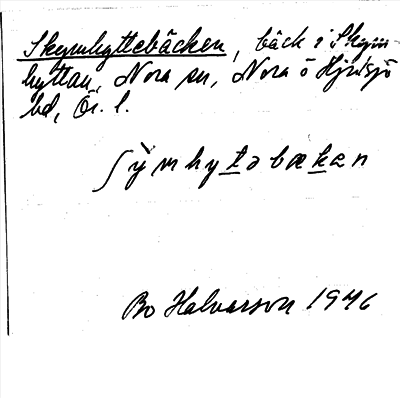 Skymhyttebäcken, bäck i Skym-
hyttan, Nora sn, Nora o Hjulsjö
bd, Ör. l.
ʃỳmhytəbækən
Bo Halvarson 1946